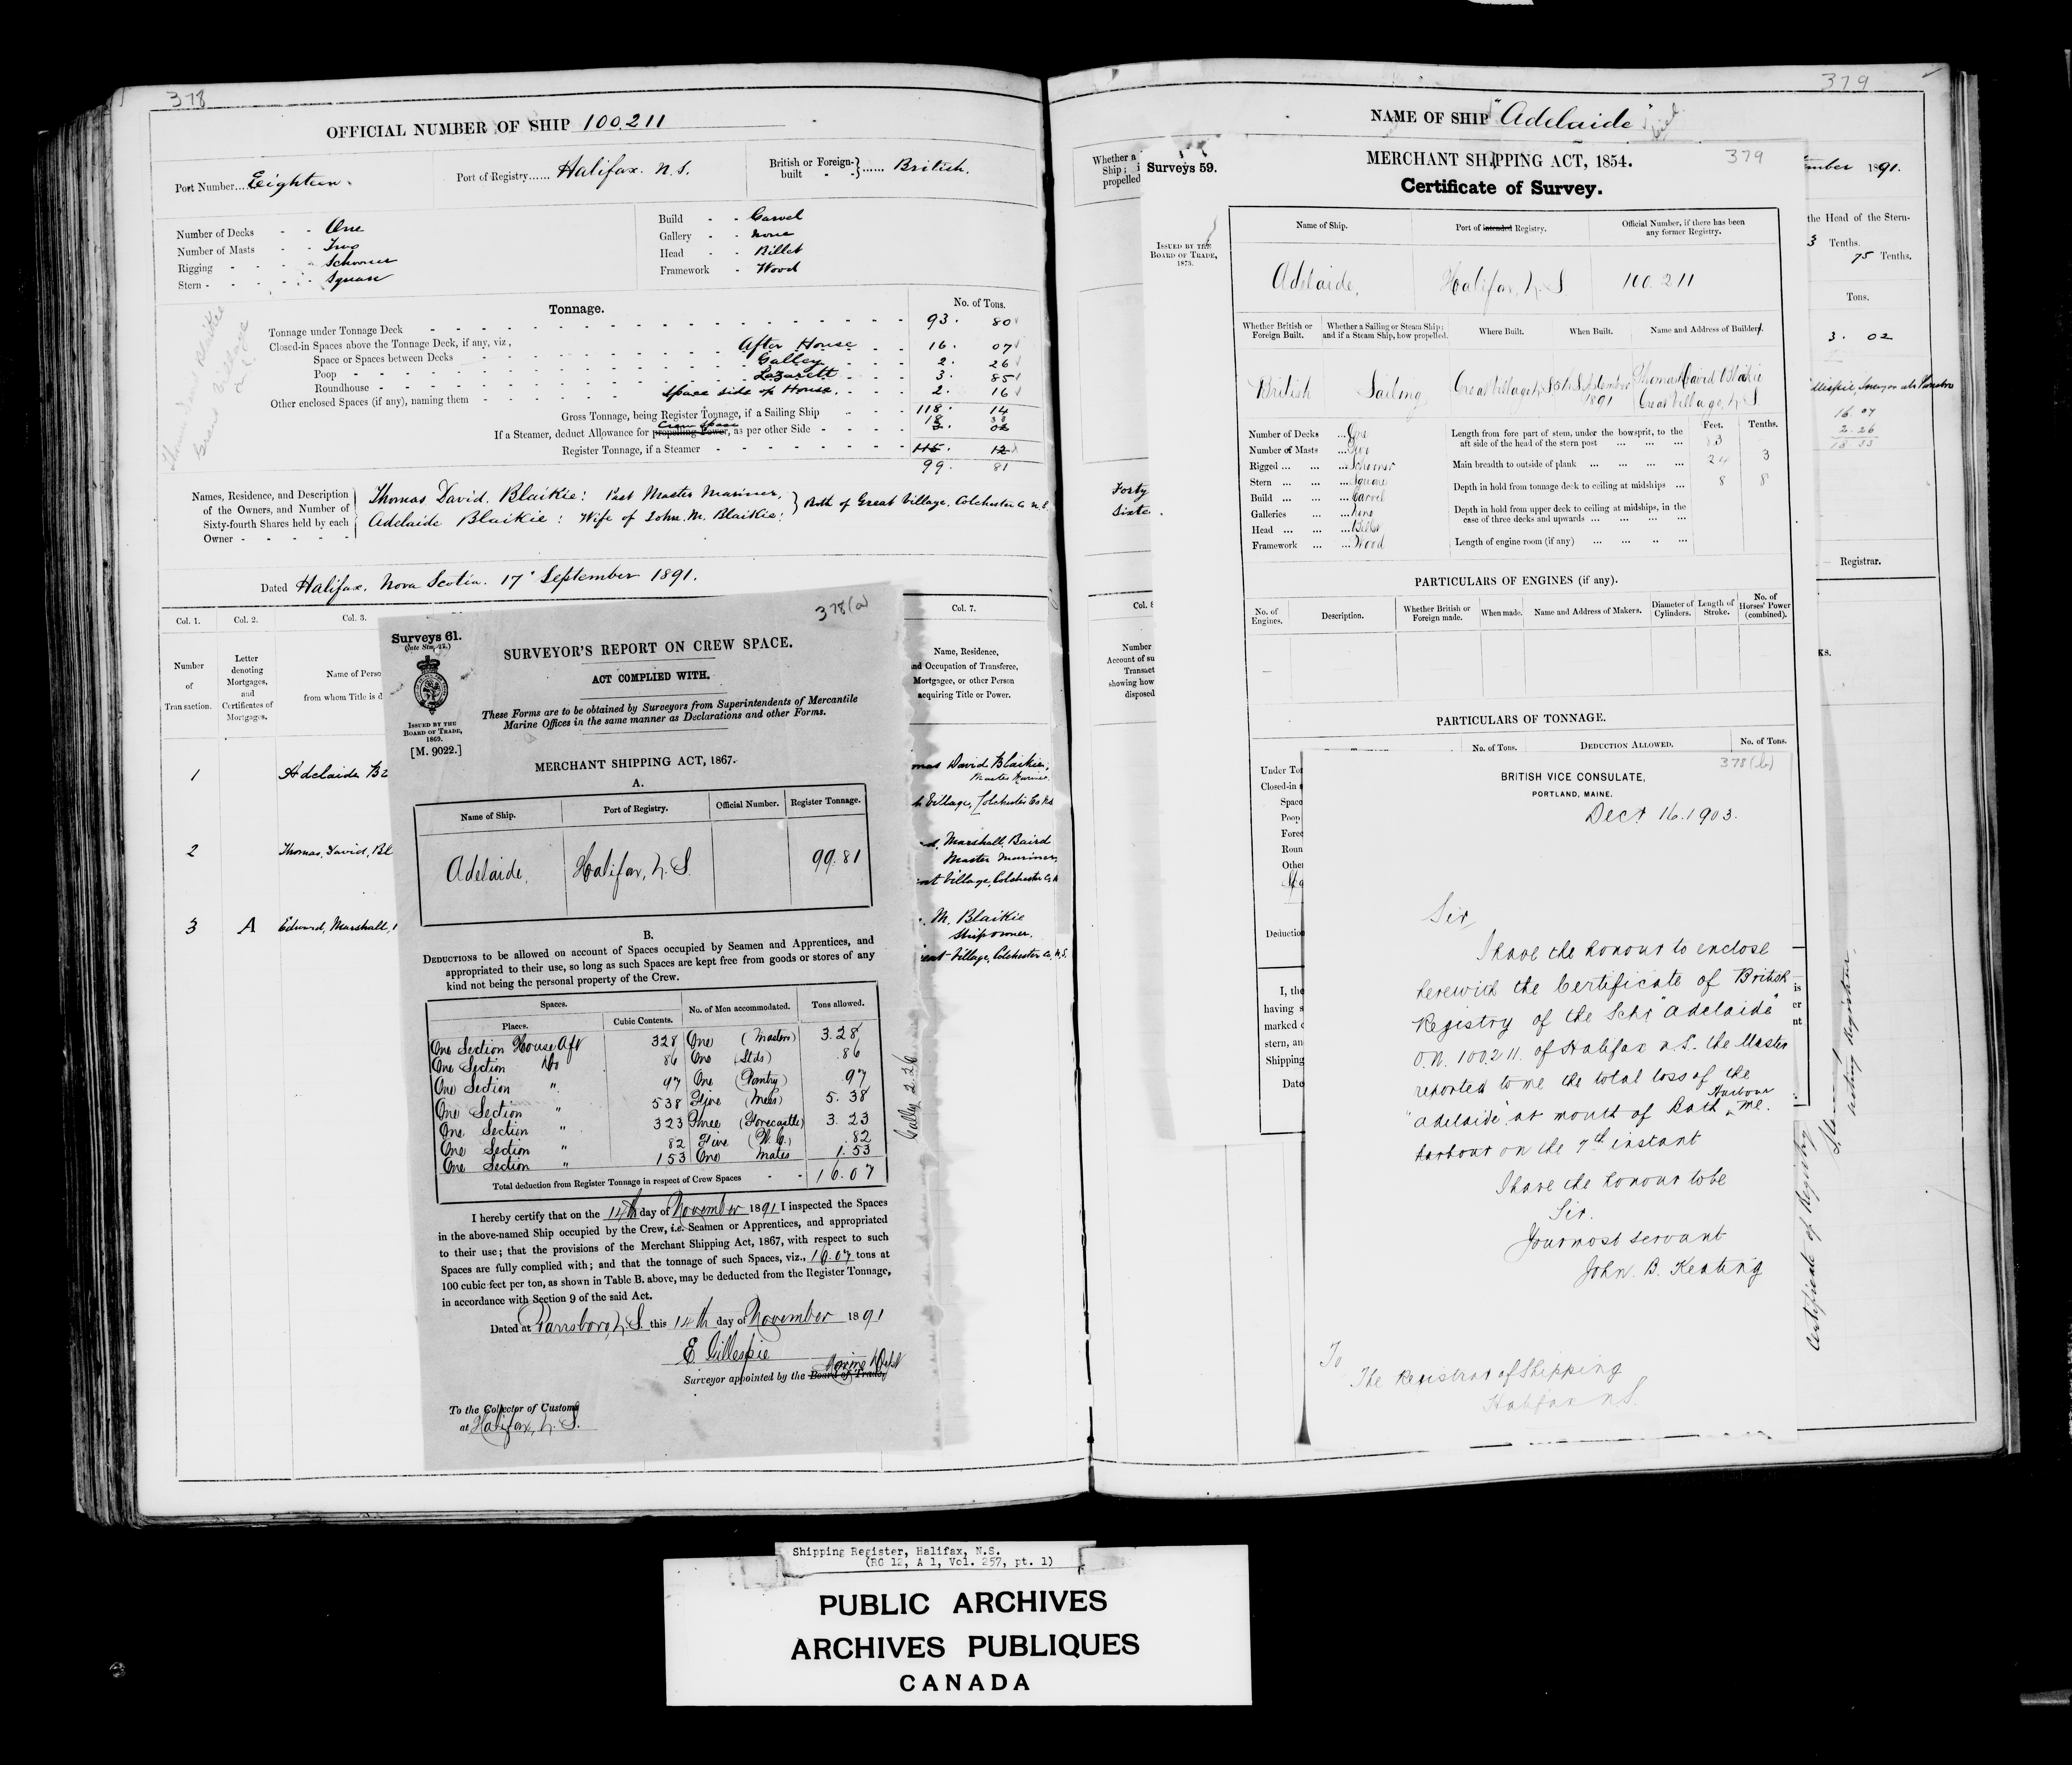 378
OFFICIAL NUMBER OF SHIP 100.211
Port Number... Eighteen.
Port of Registry...... Halifax. N.S.
British or Foreign-built - - } ...... British.
Number of Decks - - One
Number of Masts - - Two
Rigging - - - - Schooner
Stern - - - - - Square
Build - - Carvel
Gallery - - None
Head - - Billet
Framework - Wood
Thomas David Blaikie
Great Village
N.S.
Tonnage.
No. of Tons.
Tonnage under Tonnage Deck 93. 80
Closed-in Spaces above the Tonnage Deck, if any, viz, After House 16. 07
Space or Spaces between Decks Galley 2. 26
Poop Lazarett 3. 85
Roundhouse Space side of House. 2. 16
Other enclosed Spaces (if any), naming them
Gross Tonnage, being Register Tonnage, if a Sailing Ship 118. 14
Crew Space 18 33
If a Steamer, deduct Allowance for propelling Power, as per other Side 3. 02
Register Tonnage, if a Steamer 115. 12
99. 81
Names, Residence, and Description of the Owners, and Number of Sixty-fourth Shares held by each Owner - - - - -
Thomas David. Blaikie: Past Master Mariner,
Adelaide Blaikie: Wife of John. M. Blaikie: } Both of Great Village, Colchester Co N.S.
Dated Halifax. Nova Scotia. 17" September 1891.
Col. 1.
Col. 2.
Col. 3.
Col. 7.
Number of Transaction.
Letter denoting Mortgages, and Certificates of Mortgages.
Name of Perso
from whom Title is d
Name, Residence,
nd Occupation of Transferee,
Mortgagee, or other Person
acquiring Title or Power.
1 Adelaide Bl
mas David Blaikie,
Master Mariner.
t Village, Colchester Co N.S
2 Thomas, David, Bl
d, Marshall, Baird
Master Mariner,
eat Village, Colchester Co, N
3 A Edward, Marshall,
. M. Blaikie
Shipowner.
reat Village, Colchester Co, N.S.
378(a)
Surveys 61.
(late Stm. 12.)
ISSUED BY THE
BOARD OF TRADE,
1869.
[M. 9022.]
SURVEYOR'S REPORT ON CREW SPACE.
ACT COMPLIED WITH.
These Forms are to be obtained by Surveyors from Superintendents of Mercantile
Marine Offices in the same manner as Declarations and other Forms.
MERCHANT SHIPPING ACT, 1867.
A.
Name of Ship. Port of Registry. Official Number. Register Tonnage.
Adelaide, Halifax, N.S. 99.81
B.
DEDUCTIONS to be allowed on account of Spaces occupied by Seamen and Apprentices, and
appropriated to their use, so long as such Spaces are kept free from goods or stores of any
kind not being the personal property of the Crew.
Spaces.
Places. Cubic Contents. No. of Men accommodated. Tons allowed.
One Section House Aft 328 One (Masters) 3.28
One Section Do 86 One (Stds) .86
One Section " 97 One (Pantry) .97
One Section " 538 Five (Mess) 5.38
One Section " 323 Three (Forecastle) 3.23
One Section " 82 Five (W.C.) .82
One Section " 153 One Mates 1.53
Total deduction from Register Tonnage in respect of Crew Spaces - - 16.07
Galley 2.26
I hereby certify that on the 14th day of November 1891 I inspected the Spaces
in the above-named Ship occupied by the Crew, i.e. Seamen or Apprentices, and appropriated
to their use; that the provisions of the Merchant Shipping Act, 1867, with respect to such
Spaces are fully complied with; and that the tonnage of such Spaces, viz., 16.07 tons at
100 cubic feet per ton, as shown in Table B. above, may be deducted from the Register Tonnage,
in accordance with Section 9 of the said Act.
Dated at Parrsboro, N.S. this 14th day of November 1891
E Gillespie
Marine Dept
Surveyor appointed by the Board of Trade.
To the Collector of Customs
at Halifax, N.S.
379
NAME OF SHIP "Adelaide"
Whether a
Ship; i
propelled
ember 1891.
the Head of the Stern-
3 Tenths.
75 Tenths.
Tons.
3. 02
16.07
2.26
18.33
Forty
Sixte
Registrar.
Col. 8
Number
Account of su
Transact
showing how
disposed
KS.
Surveys 59.
ISSUED BY THE
BOARD OF TRADE,
1873.
379
MERCHANT SHIPPING ACT, 1854.
Certificate of Survey.
Name of Ship. Port of intended Registry. Official Number, if there has been any former Registry.
Adelaide, Halifax, N.S 100.211
Whether British or Foreign Built. Whether a Sailing or Steam Ship; and if a Steam Ship, how propelled. Where Built. When Built. Name and Address of Builders.
British Sailing Great Village, N.S 5th September 1891 Thomas David Blaikie Great Village, N.S
Number of Decks ... One
Number of Masts ... Two
Rigged ... ... Schooner
Stern ... ... Square
Build ... ... Carvel
Galleries ... None
Head ... ... Billet
Framework ... Wood
Feet. Tenths.
Length from fore part of stem, under the bowsprit, to the
aft side of the head of the stern post ... 83
Main breadth to outside of plank ... 24 3
Depth in hold from tonnage deck to ceiling at midships ... 8 8
Depth in hold from upper deck to ceiling at midships, in the
case of three decks and upwards ...
Length of engine room (if any) ...
PARTICULARS OF ENGINES (if any).
No. of Engines. Description. Whether British or Foreign made. When made. Name and Address of Makers. Diameter of Cylinders. Length of Stroke. No. of Horses' Power (combined).
PARTICULARS OF TONNAGE.
No. of Tons. DEDUCTION ALLOWED. No. of Tons.
Under To
Closed-in
Space
Poop
Forec
Roun
Other
Deductio
I, the
having s
marked o
stern, an
Shipping
Date
378(b)
BRITISH VICE CONSULATE,
PORTLAND, MAINE.
Decr 16. 1903.
Sir,
I have the honour to enclose
herewith the Certificate of British
Registry of the Schr "Adelaide"
O.N. 100.211. of Halifax N.S. the Master
reported to me the total loss of the
"Adelaide" at mouth of Bath Harbour Me.
harbour on the 7th instant
I have the honour to be
Sir.
Your most servant
John. B. Keating
To
The Registrar of Shipping
Halifax N.S.
is
er
nt
Certificate of Registry
Acting Registrar
Shipping Register, Halifax, N.S.
(RG 12, A 1, Vol. 257, pt. 1)
PUBLIC ARCHIVES
ARCHIVES PUBLIQUES
CANADA